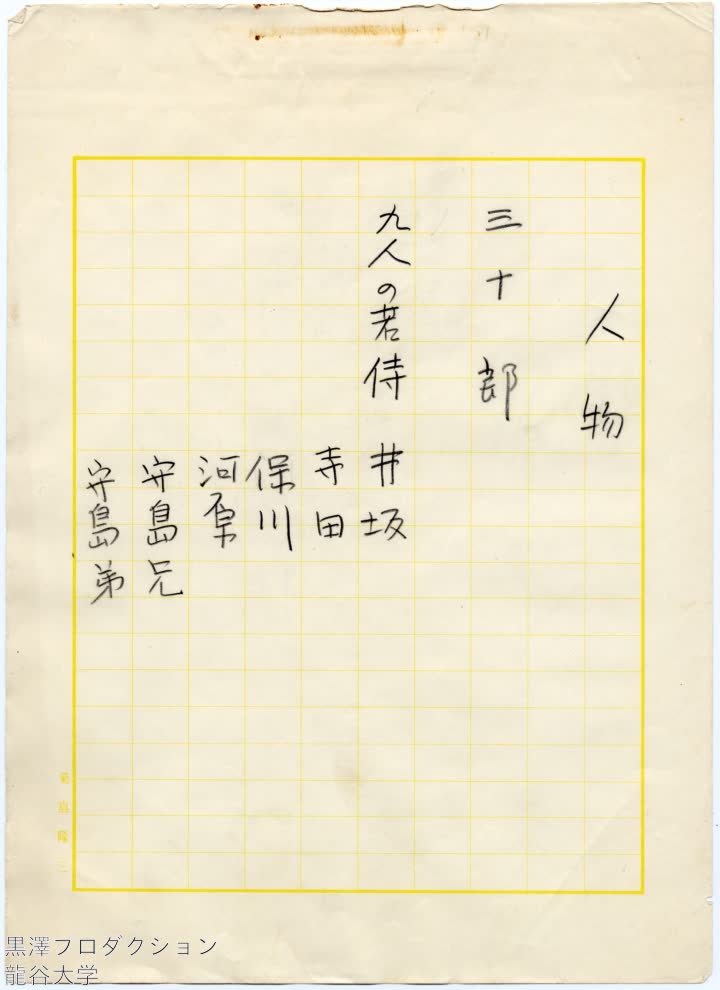 人物
三十郎
九人の若侍 井坂
寺田
保川
河原
守島兄
守島弟
菊島隆三
黒澤プロダクション
龍谷大学